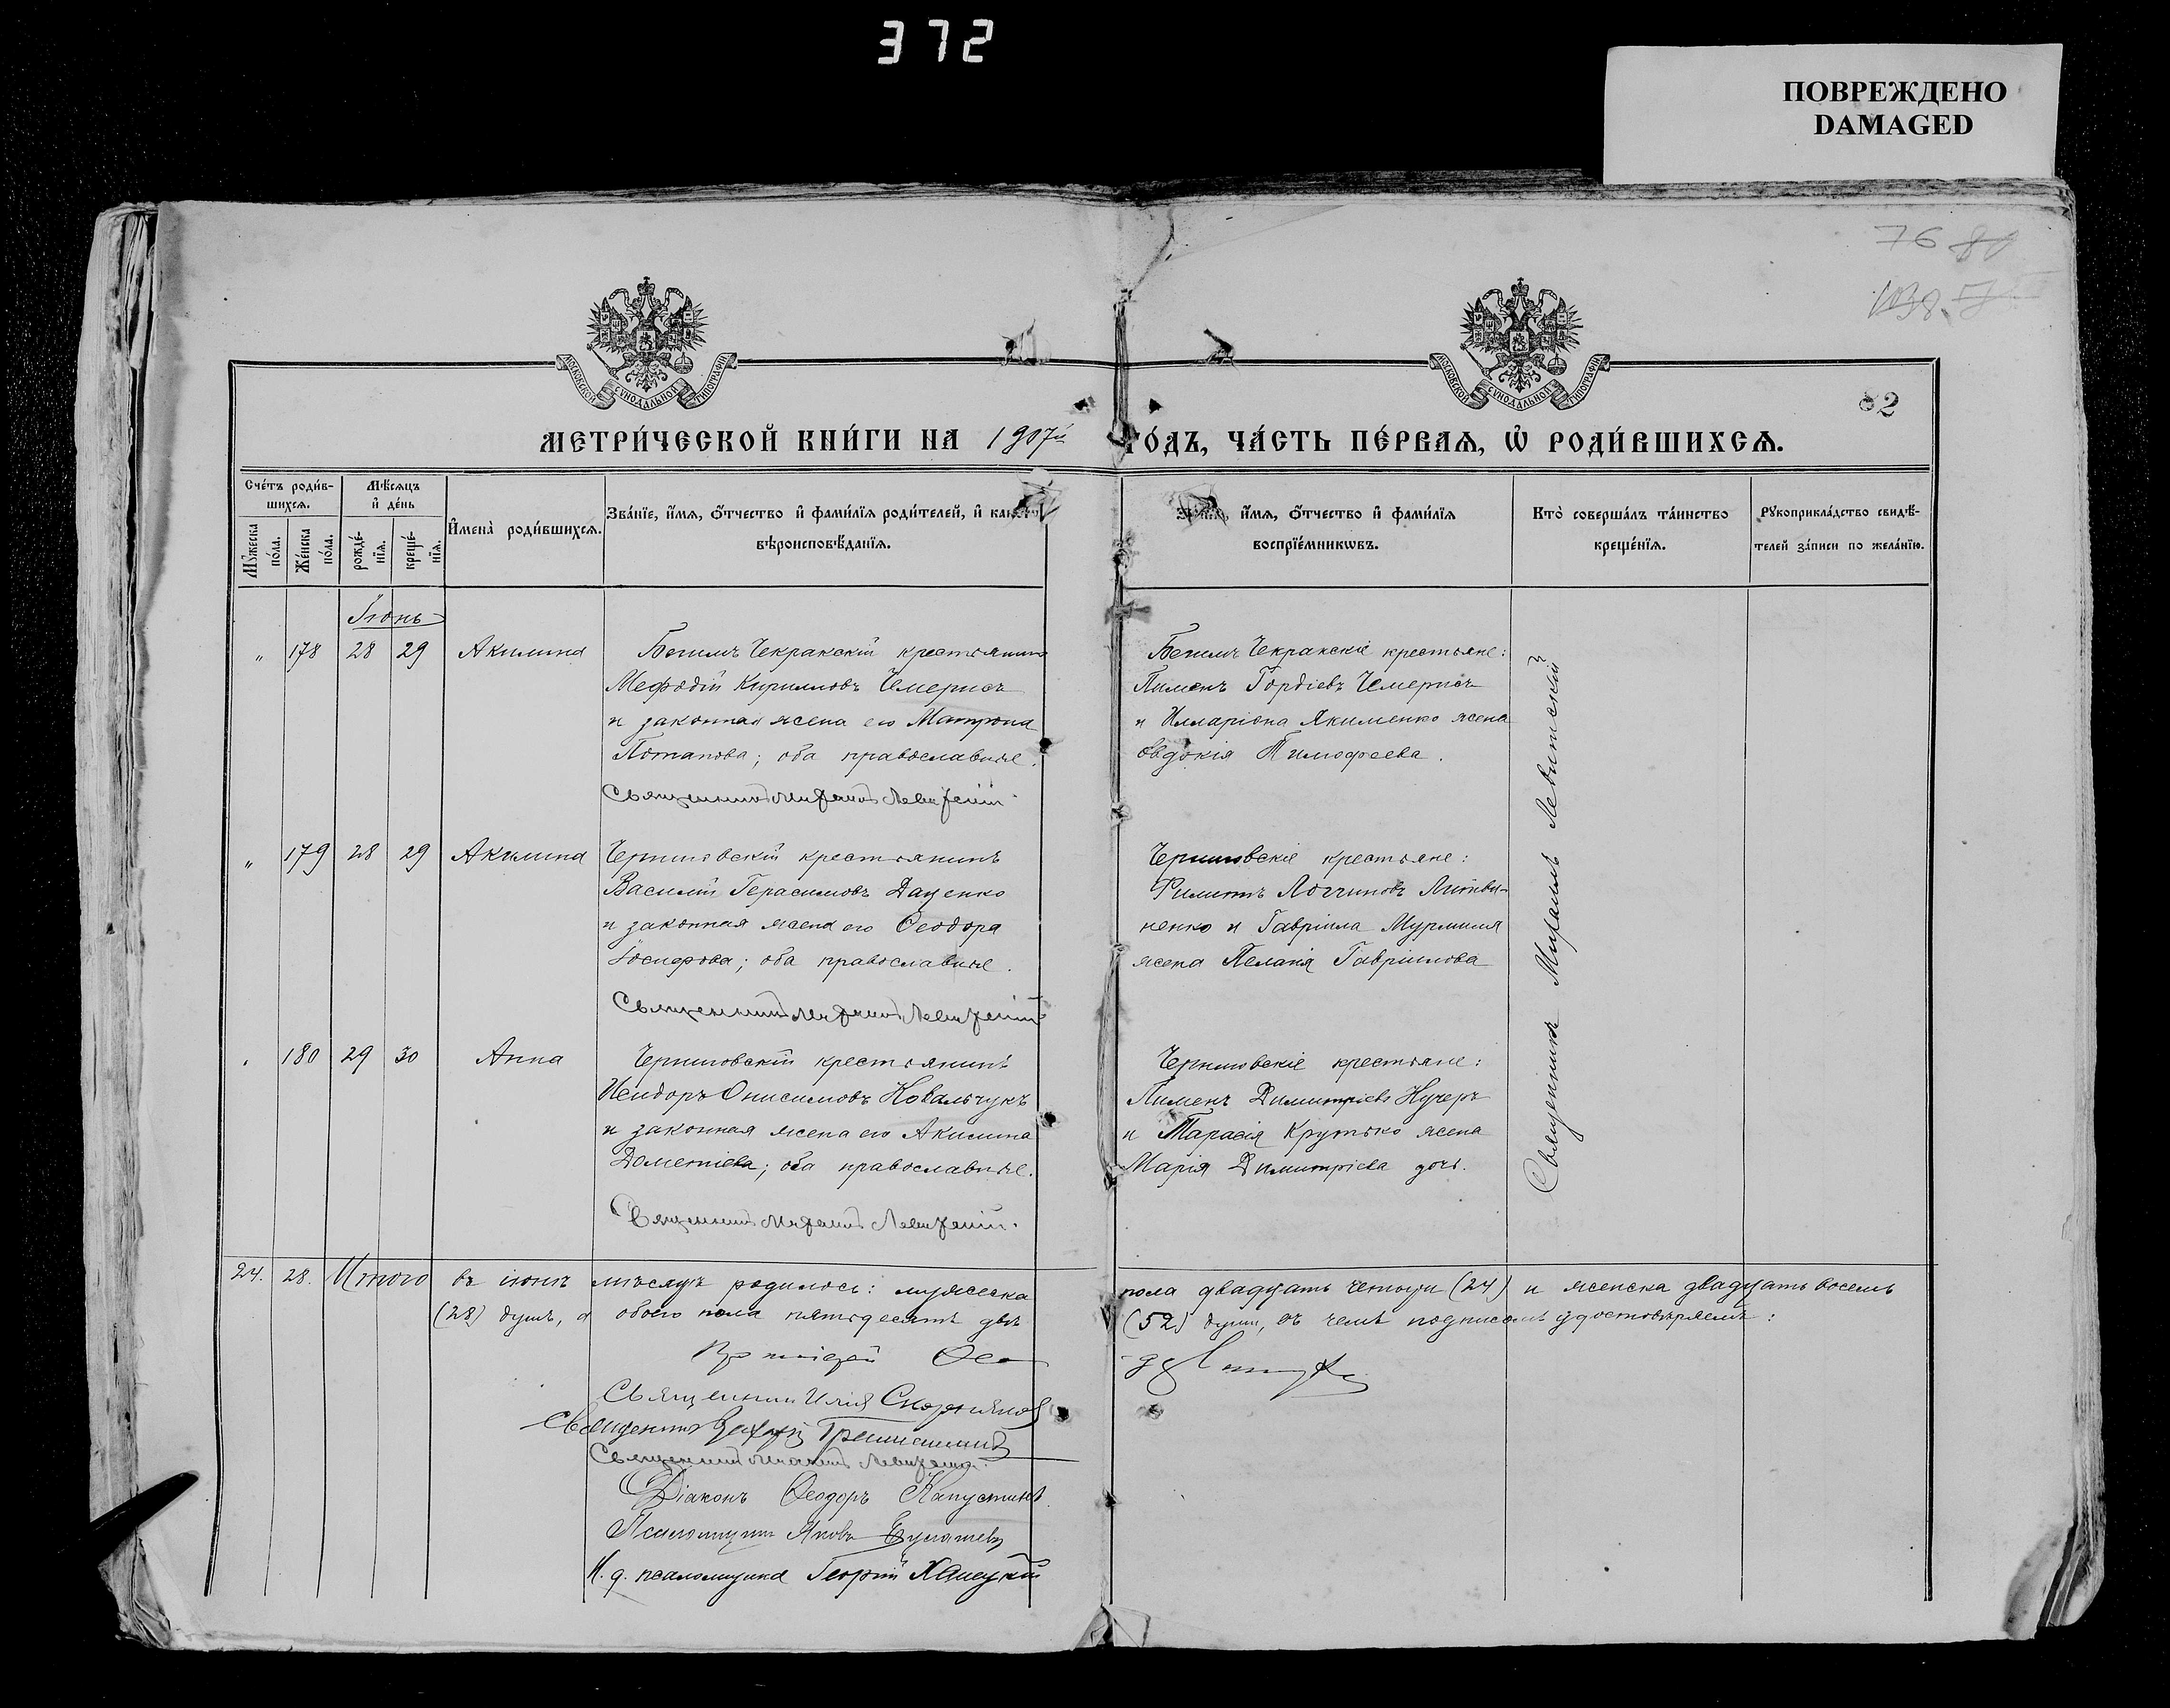 372
ПОВРЕЖДЕНО
DAMAGED
76
МОСКОВСКОЙ СѴНОДАЛЬНОЙ ТИПОГРАФІИ
МОСКОВСКОЙ СѴНОДАЛЬНОЙ ТИПОГРАФІИ
82
МЕТРИ́ЧЕСКОЙ КНИ́ГИ НА 1907й ГО́ДЪ, ЧА́СТЬ ПЕ́РВАЯ, Ѡ РОДИ́ВШИХСЯ.
Сче́тъ роди́в-
шихся.
Мѣ́сяцъ
и҆ де́нь
Мꙋ́жеска
по́ла.
Же́нска
по́ла.
рожде́-
нїя.
креще́-
нїя.
И҆мена̀ роди́вшихся.
Зва́нїе, и҆́мя, о҆́тчество и҆ фами́лїя роди́телей, и҆ како́гѡ
вѣроисповѣ́данїя.
Зва́нїе, и҆́мя, о҆́тчество и҆ фами́лїя
воспрїе́мникѡвъ.
Кто̀ соверша́лъ та́инство
креще́нїя.
Рꙋкоприкла́дство свидѣ́-
телей за́писи по жела́нїю.
Іюнь
" 178 28 29 Акилина
Бегимъ Чекракскій крестьянинъ
Мефодій Кирилловъ Чемерисъ
и законная жена его Матрона
Потапова; оба православные.
Священникъ Михаилъ Левитскій
Бегимъ Чекракскіе крестьяне:
Пименъ Гордіевъ Чемерисъ
и Илларіона Якименко жена
Евдокія Тимофеева.
" 179 28 29 Акилина
Черниговскій крестьянинъ
Василій Герасимовъ Даценко
и законная жена его Ѳеодора
Іосифова; оба православные.
Священникъ Михаилъ Левитскій
Черниговскіе крестьяне:
Филиппъ Логгиновъ Литви-
ненко и Гавріила Мурмиля
жена Пелагія Гавріилова
" 180 29 30 Анна
Черниговскій крестьянинъ
Исидоръ Онисимовъ Ковальчукъ
и законная жена его Акилина
Дометіева; оба православные.
Священникъ Михаилъ Левитскій.
Черниговскіе крестьяне:
Пименъ Димитріевъ Кучеръ
и Тарасія Крутько жена
Марія Димитріева дочь.
Священникъ Михаилъ Левитскій
24. 28. Итого въ іюнѣ мѣсяцѣ родилось: мужеска пола двадцать четыри (24) и женска двадцать восемь
(28) душъ, а обоего пола пятьдесятъ двѣ (52) души, въ чемъ подписомъ удостовѣряемъ:
Священникъ Илія
Священникъ
Священникъ Михаилъ Левитскій.
Діаконъ Ѳеодоръ Капустинъ
Псаломщикъ Яковъ
И. д. псаломщика Георгій